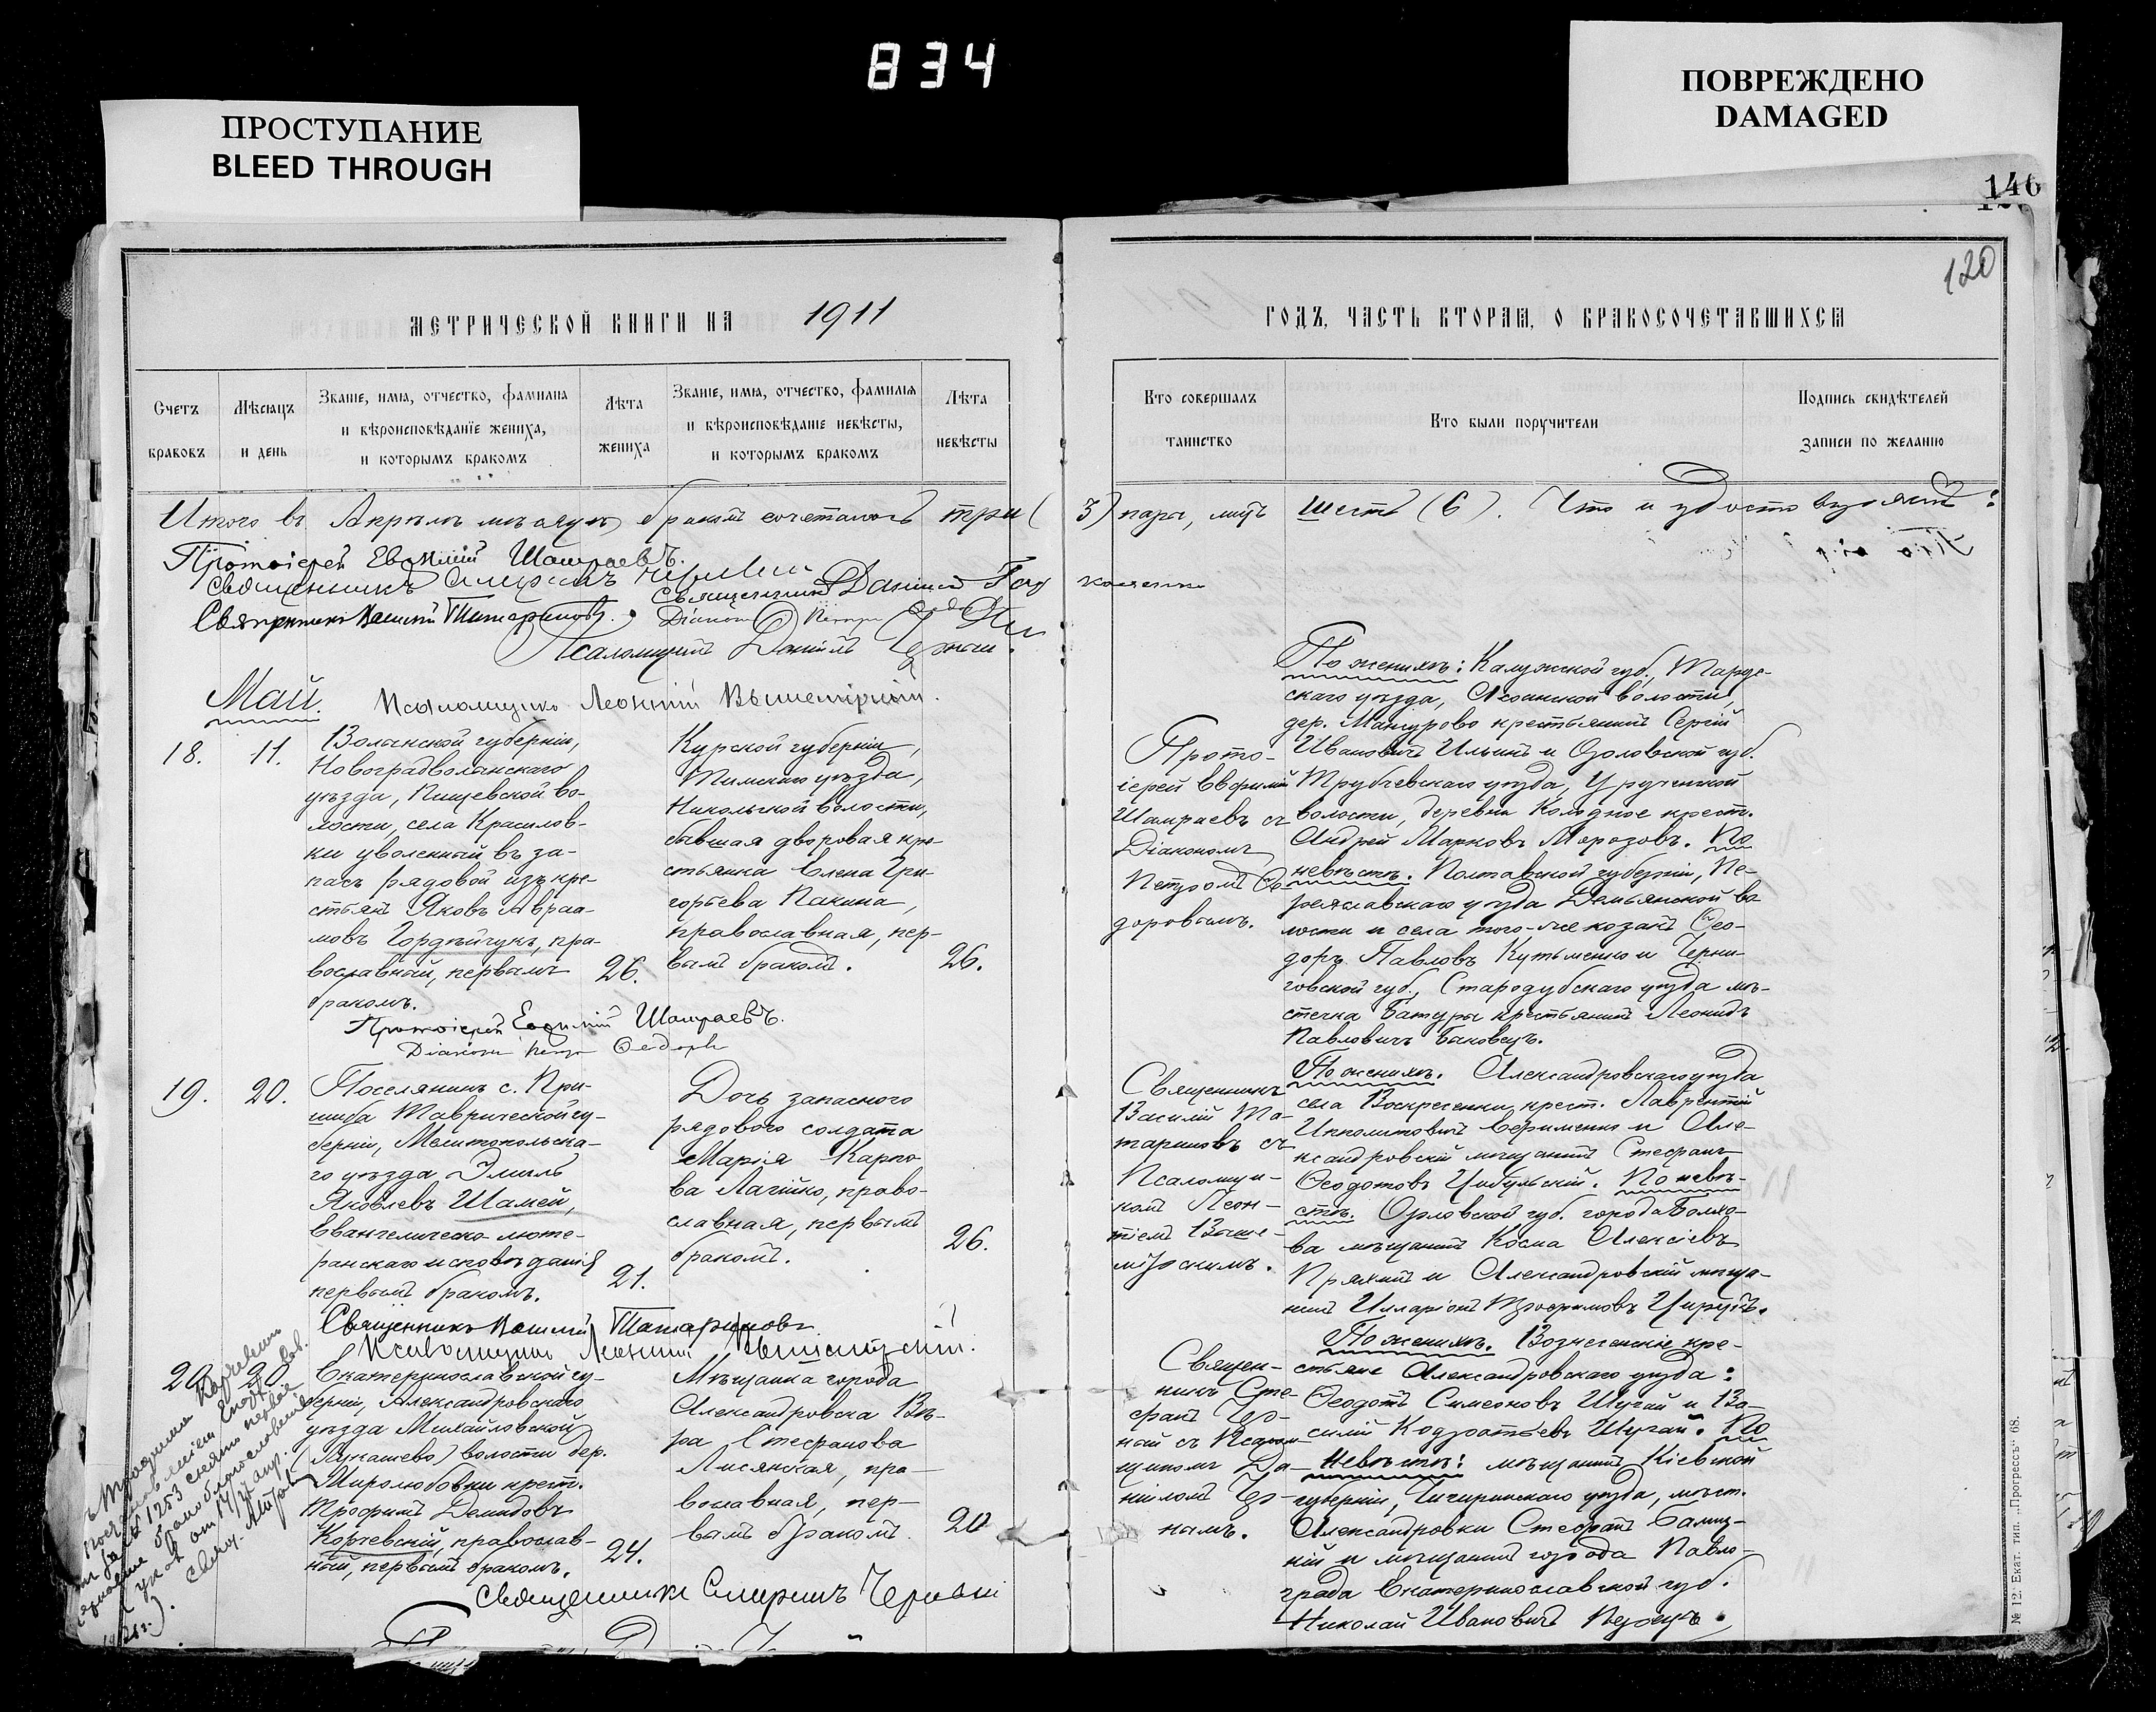 834
ПРОСТУПАНИЕ
BLEED THROUGH
ПОВРЕЖДЕНО
DAMAGED
146
120
МЕТРИЧЕСКОЙ КНИГИ НА 1911
ГОДЪ, ЧАСТЬ ВТОРАЯ, О БРАКОСОЧЕТАВШИХСЯ
Счетъ браковъ
Мѣсяцъ и день
Званіе, имя, отчество, фамилія и вѣроисповѣданіе жениха, и которымъ бракомъ
Лѣта жениха
Званіе, имя, отчество, фамилія и вѣроисповѣданіе невѣсты, и которымъ бракомъ
Лѣта невѣсты
Кто совершалъ таинство
Кто были поручители
Подпись свидѣтелей записи по желанію
Итого въ Апрѣлѣ мѣсяцѣ бракомъ сочеталось три (3) пары, лицъ шесть (6). Что и удостовѣряемъ:
Протоіерей Евфимій Шамраевъ.
Священникъ
Священникъ Даниилъ
Священникъ Василій Татариновъ.
Діаконъ Петръ
Псаломщикъ Даніилъ Черный.
Май.
Псаломщикъ Леонтій Вышемірскій.
18.
11.
Волынской губерніи,
Новоградволынскаго
уѣзда, Пищевской во-
лости, села Красилов-
ки уволенный въ за-
пасъ рядовой изъ кре-
стьянъ Яковъ Авраа-
мовъ Гордѣйчукъ, пра-
вославный, первымъ
бракомъ.
26.
Курской губерніи,
Тимскаго уѣзда,
Никольской волости,
бывшая дворовая кре-
стьянка Елена Гри-
горьева Пакина,
православная, пер-
вымъ бракомъ.
26.
Протоіерей Евфимій Шамраевъ.
Діаконъ Петръ Ѳедоровъ
Прото-
іерей Евфимій
Шамраевъ съ
Діакономъ
Петромъ Ѳе-
доровымъ.
По женихѣ: Калужской губ., Таруc-
скаго уѣзда,
дер. Манчурово крестьянинъ Сергій
Ивановичъ Ильинъ и Орловской губ.
Трубчевскаго уѣзда,
волости, деревни Колодное крест.
Андрей Марковъ Морозовъ. По
невѣстѣ: Полтавской губерніи, Пе-
реяславскаго уѣзда Демьянской во
лости и села того-же козакъ Ѳео-
доръ Павловъ Кутьменко и Черни-
говской губ., Стародубскаго уѣзда мѣ-
стечка крестьянинъ Леонидъ
Павловичъ Баковецъ.
19.
20.
Поселянинъ с. При-
шиба Таврической гу-
берніи, Мелитопольска-
го уѣзда Эмиль
Яковлевъ Шамей,
Евангелическо-люте-
ранскаго исповѣданія
первымъ бракомъ.
21.
Дочь запаснаго
рядового солдата
Марія Карпо-
ва Лагійко, право-
славная, первымъ
бракомъ.
26.
Священникъ Василій Татариновъ.
Псаломщикъ Леонтій Вышемірскій.
Священникъ
Василій Та-
тариновъ съ
Псаломщи-
комъ Леон-
тіемъ Выше-
мірскимъ.
По женихѣ. Александровскаго уѣзда
села Воскресенки крест. Лаврентій
Ипполитовичъ Ефименко и Але-
ксандровскій мѣщанинъ Стефанъ
Ѳеодотовъ Цибульскій. По невѣ-
стѣ. Орловской губ. города Болхо-
ва мѣщанинъ Косма Алексѣевъ
Пряхинъ и Александровскій мѣща-
нинъ Илларіонъ Трофимовъ
20.
20
Екатеринославской гу-
берніи, Александровскаго
уѣзда Михайловской
(Лукашево) волости дер.
Миролюбовки крест.
Трофимъ Демидовъ
Корчевскій, православ-
ный, первымъ бракомъ.
24.
Мѣщанка города
Александровска Вѣ-
ра Стефанова
Лисянская, пра-
вославная, пер-
вымъ бракомъ.
20
Священникъ
Священ-
никъ Сте-
фанъ Чер-
ный съ Псалом-
щикомъ Да-
ніиломъ Чер-
нымъ.
По женихѣ. Вознесенскіе кре-
стьяне Александровскаго уѣзда:
Ѳеодотъ Симеоновъ Шугай и Ва-
силій Кодратьевъ Шугай. По
невѣстѣ: мѣщанинъ Кіевской
губерніи, Чигиринскаго уѣзда, мѣст.
Александровки Стефанъ
и мѣщанинъ города Павло-
града Екатеринославской губ.
Николай Ивановичъ
№ 12. Екат. тип. „Прогрессъ" 68.